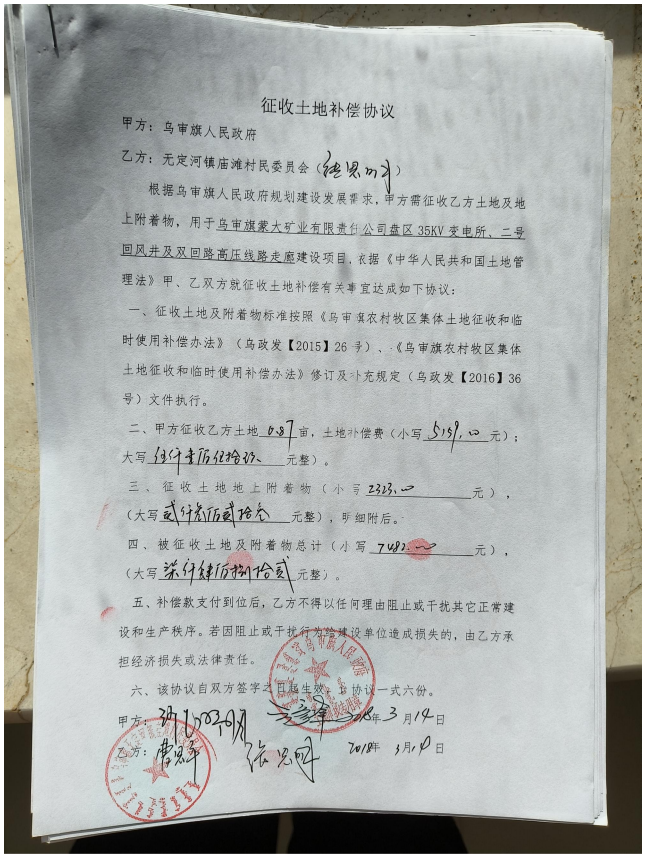 征收土地补偿协议
甲方：乌审旗人民政府
乙方：无定河镇庙滩村民委员会（
根据乌审旗人民政府规划建设发展需求，甲方需征收乙方土地及地
上附着物，用于乌审旗蒙大矿业有限责任公司盘区 35KV 变电所、二号
回风井及双回路高压线路走廊建设项目，依据《中华人民共和国土地管
理法》甲、乙双方就征收土地补偿有关事宜达成如下协议：
一、征收土地及附着物标准按照《乌审旗农村牧区集体土地征收和临
时使用补偿办法》（乌政发【2015】26 号）、《乌审旗农村牧区集体
土地征收和临时使用补偿办法》修订及补充规定（乌政发【2016】36
号）文件执行。
二、甲方征收乙方土地 0.87 亩，土地补偿费（小写 5159.00 元）；
大写 伍仟壹佰伍拾玖 元整）。
三、征收土地地上附着物（小写 2323.00 元），
（大写 贰仟叁佰贰拾叁 元整），明细附后。
四、被征收土地及附着物总计（小写 7482.00 元），
（大写 柒仟肆佰捌拾贰 元整）。
五、补偿款支付到位后，乙方不得以任何理由阻止或干扰其它正常建
设和生产秩序。若因阻止或干扰行为给建设单位造成损失的，由乙方承
担经济损失或法律责任。
六、该协议自双方签字之日起生效，协议一式六份。
甲方： 2018年 3 月 14 日
乙方： 2018年 3月 14 日